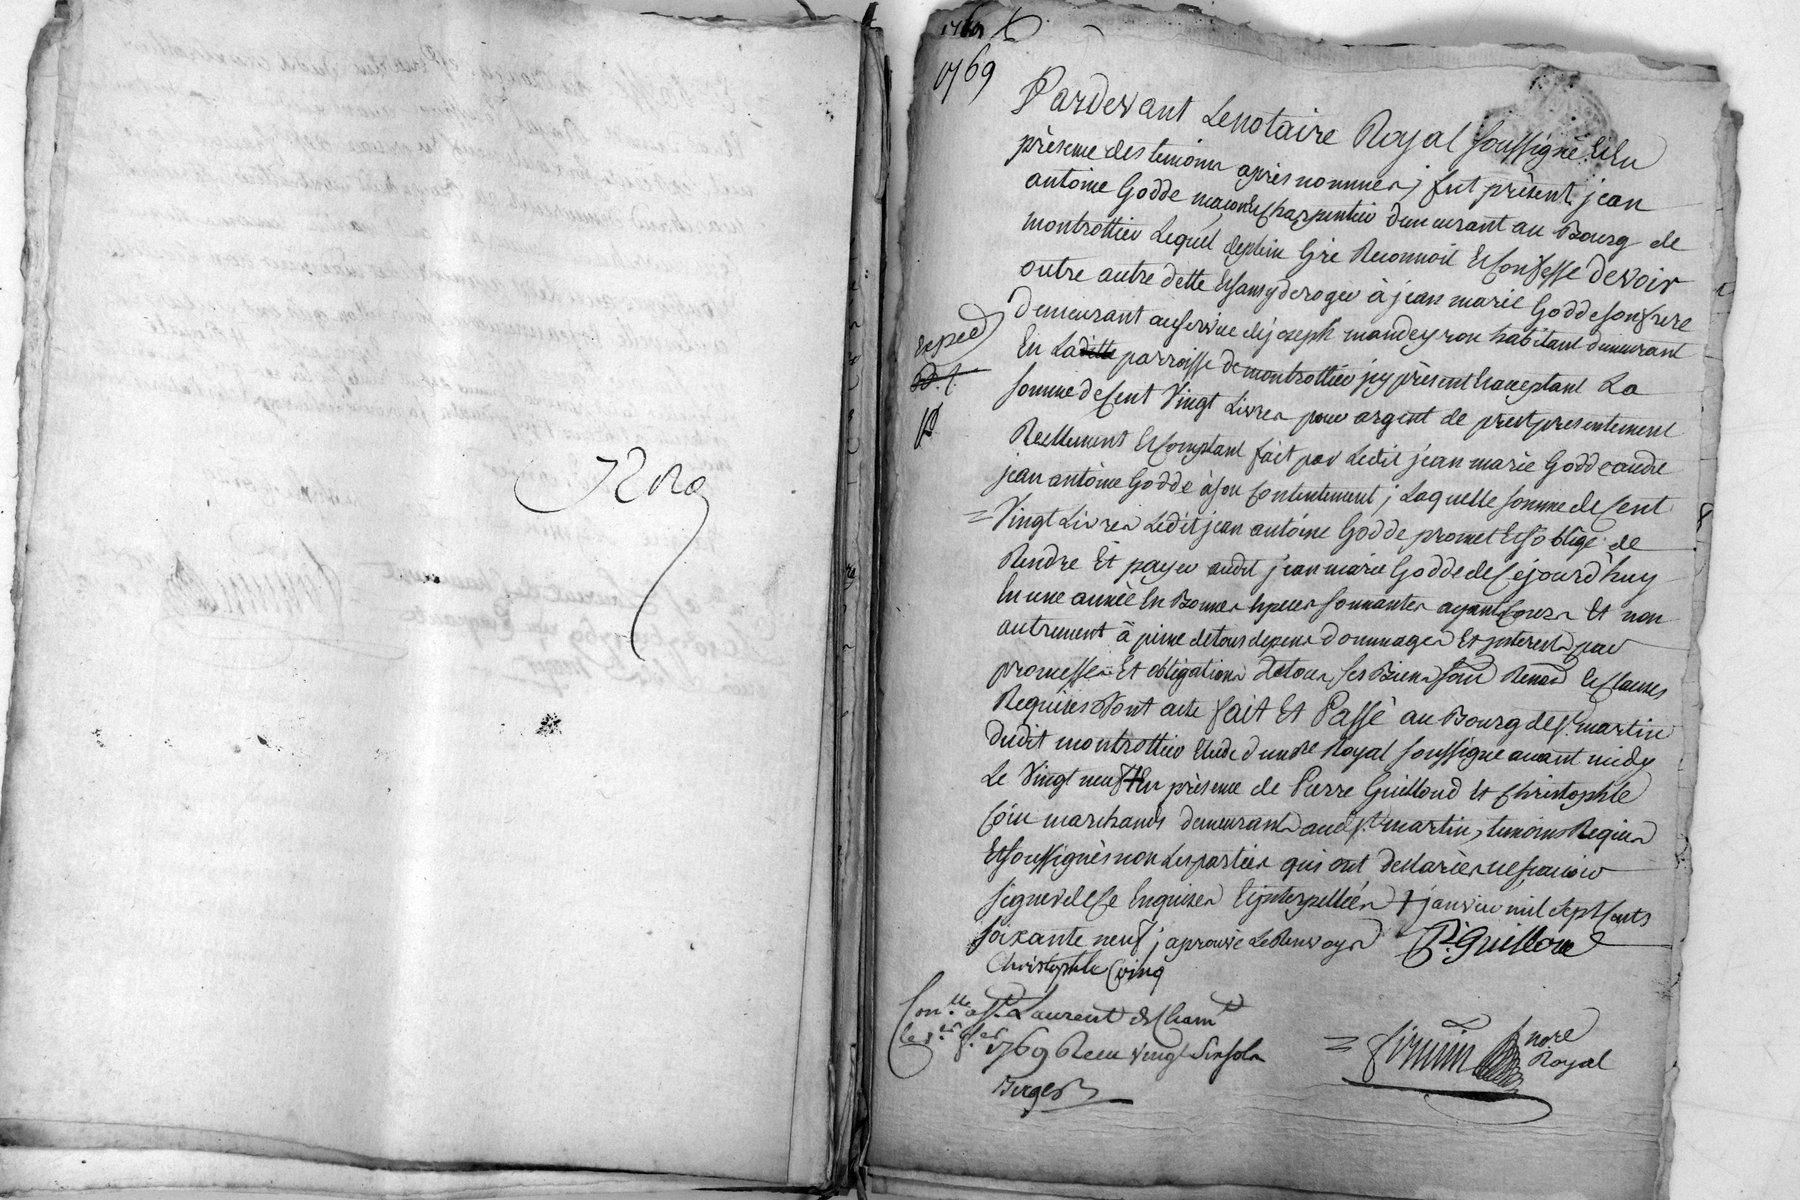 1769
1769
Pardevant Lenotaire Royal soussigné Et En
présence des temoins après nommes, fut présent jean
antoine Godde maçon Et charpentier demeurant au Bourg de
montrottier Lequel deplein Gré Reconnoit Et Confesse devoir
outre autre dette Et sans y deroger à jean marie Godde son frere
Demeurant au service de joseph mandeyron habitant demeurant
En La ditte parroisse de montrottier jcy présent Et acceptant La
somme de Cent Vingt Livres pour argent de prest presentement
Reellement Et Comptant fait par Ledit jean marie Godde audit
jean antoine Godde à son Contentement ; Laquelle somme de Cent
Vingt Livres Ledit jean antoine Godde promet Et s'oblige de
Rendre Et payer audit jean marie Godde de Cejourd'huy
En une année En Bonnes Especes sonnantes ayant Cours Et non
autrement à peine de tous depens dommages Et jnterests par
promesses Et obligations de tous ses Biens sous Renon Et Clauses
Requises Dont acte fait Et Passé au Bourg de St martin
dudit montrottier Etude du nore Royal soussigné avant midy
Le Vingt neuf + En présence de Pierre Guilloud Et Christophle
Coin marchands demeurants aud St martin, temoins Requis
Et soussignés non Les parties qui ont declarées ne scavoir
signer de Ce Enquises Et jnterpellées + janvier mil sept Cents
soixante neuf j'aprouve Le Renvoy
P. Guilloud
Christophle Coing
Expéd
Con.lle a St Laurent de Cham.t
Le 8.er f.er 1769 Recu vingt six sols
Berger
firmin nore
Royal